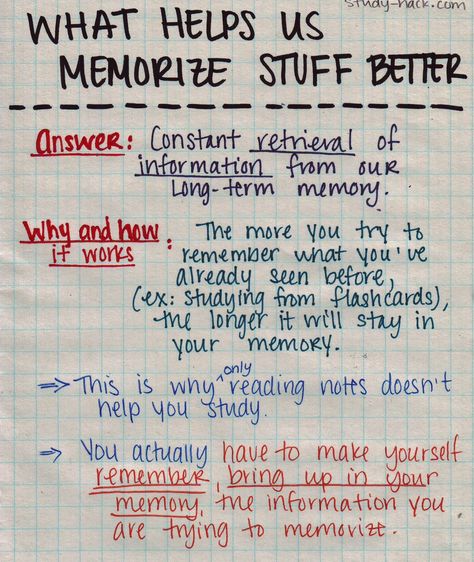 study-hack.com
WHAT HELPS US
MEMORIZE STUFF BETTER
Answer: Constant retrieval of
information from our
long-term memory.
Why and how
it works : The more you try to
remember what you've
already seen before,
(ex: studying from flashcards),
the longer it will stay in
your memory.
⇒ This is why only reading notes doesn't
help you study.
⇒ You actually have to make yourself
remember, bring up in your
memory, the information you
are trying to memorize.